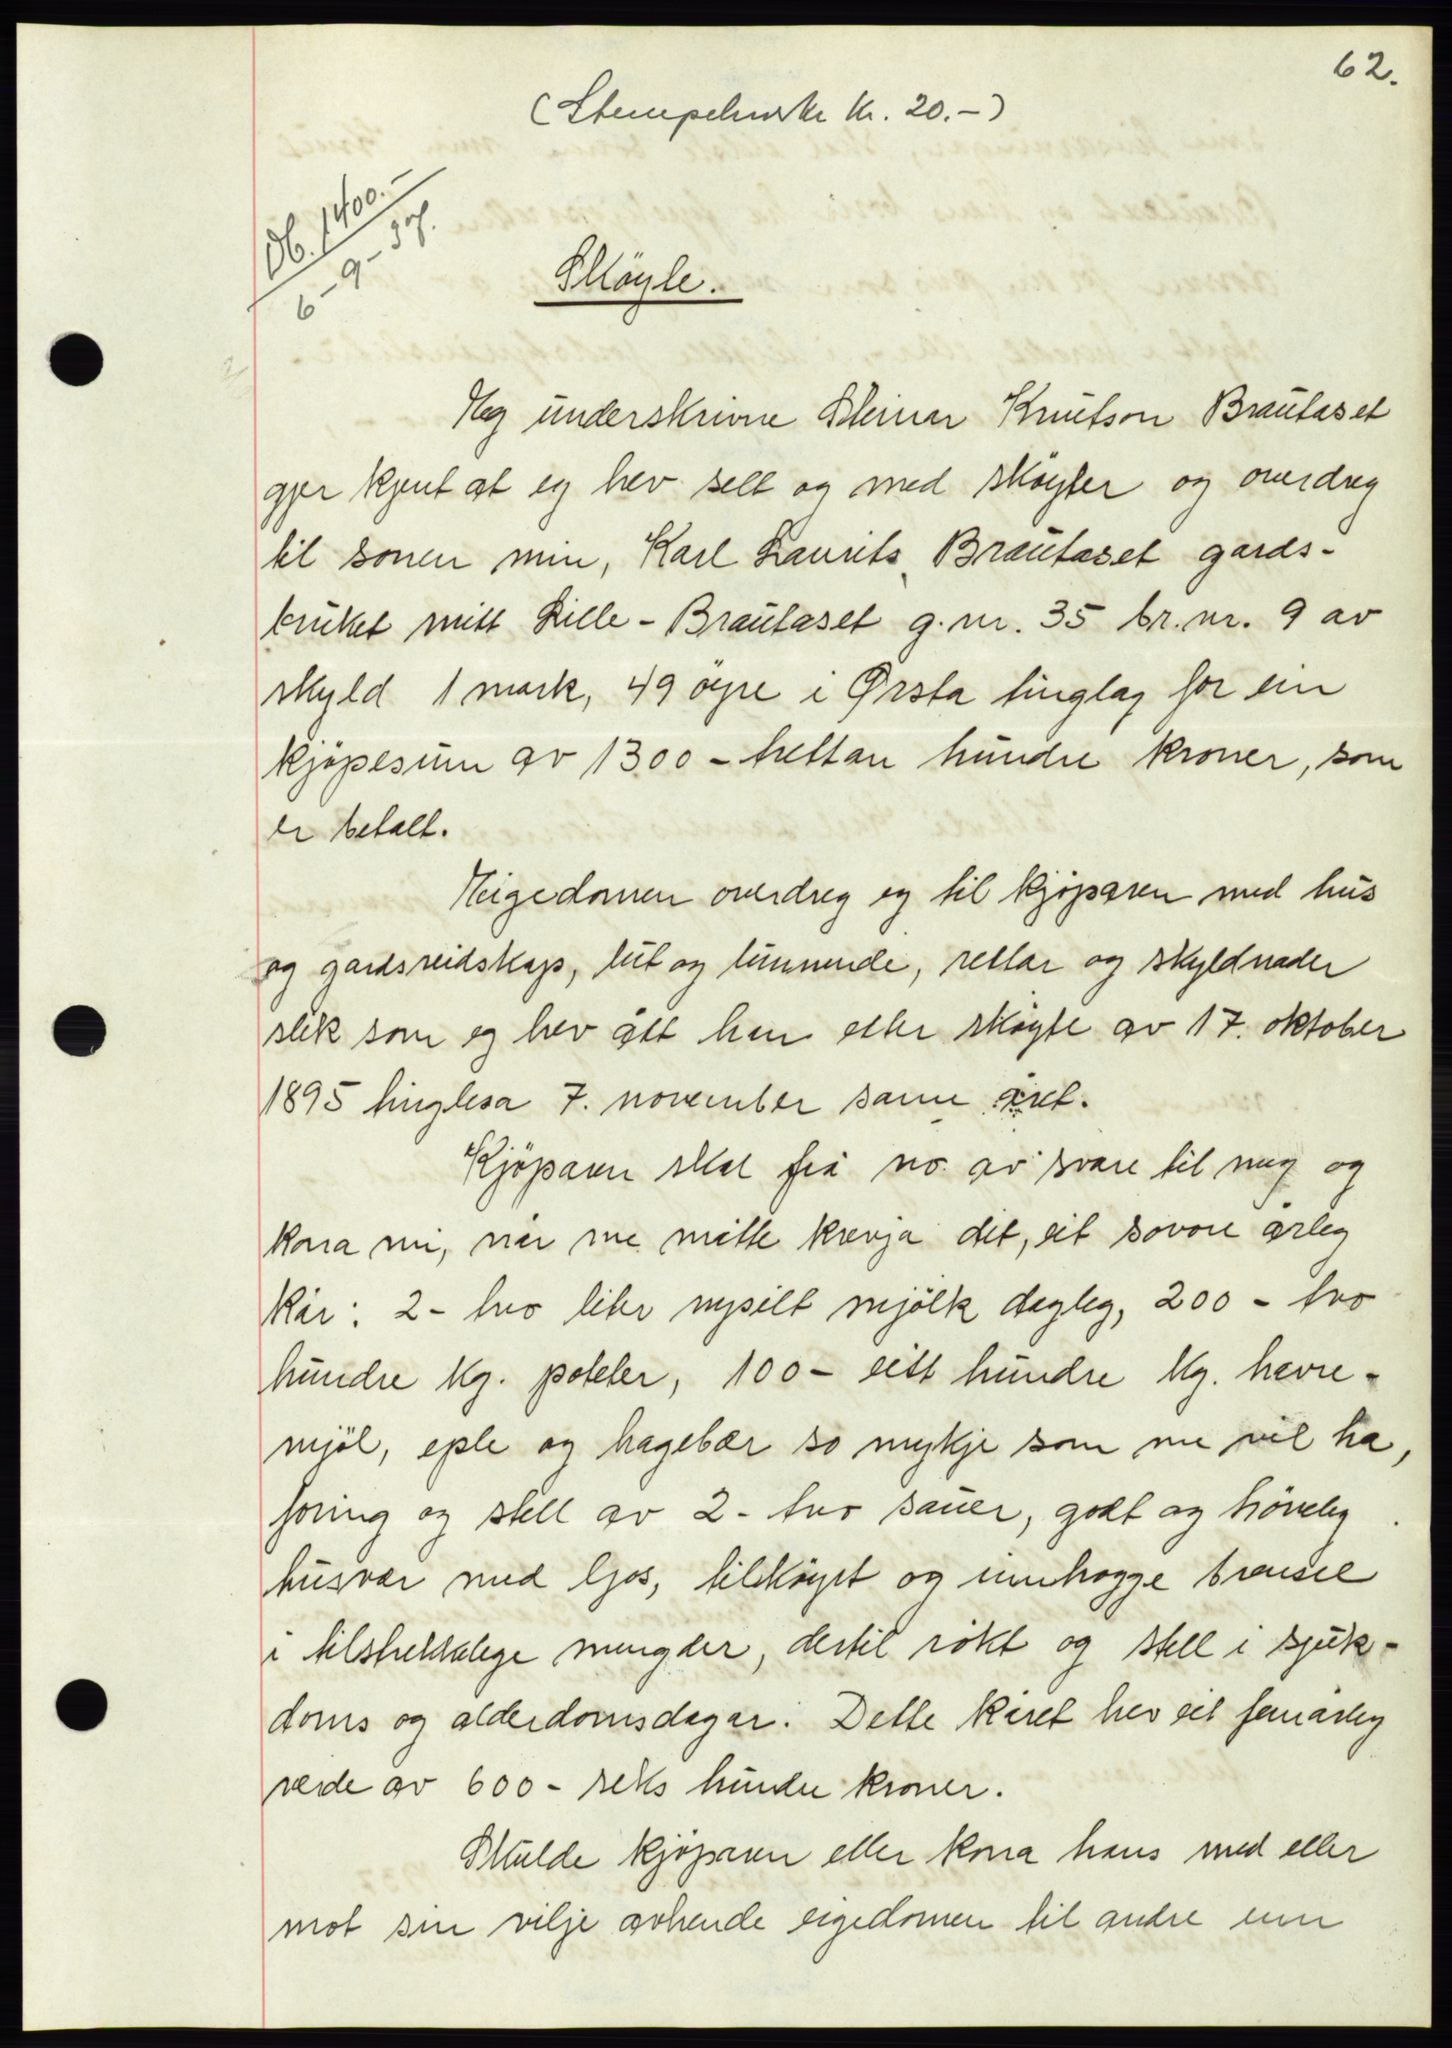 62.
(Stempelmerke kr. 20.-)
Db. 1400.-
6-9-37.
Sköyte.
Eg underskrivne Steinar Knutson Brautaset
gjer kjent at eg hev selt og med sköyter og overdreg
til sonen min, Karl Laurits Brautaset gards-
bruket mitt Lille-Brautaset g.nr. 35 br.nr. 9 av
skyld 1 mark, 49 öyre i Ørsta tinglag for ein
kjöpesum av 1300 - trettan hundre kroner, som
er betalt.
Eigedomen overdreg eg til kjöparen med hus
og gardsreidskap, lut og lunnende, rettar og skyldnader
slik som eg hev ått han etter sköyte av 17. oktober
1895 tinglesa 7. november same året.
Kjöparen skal frå no av svare til meg og
kona mi, når me måtte krevja det, eit sovore årleg
kår: 2 - tvo liter nysilt mjölk dagleg, 200 - tvo
hundre kg. poteter, 100 - eitt hundre kg. havre-
mjöl, eple og hagebær so mykje som me vil ha,
foring og stell av 2 - tvo sauer, godt og höveleg
husvær med ljos, tilköyrt og innhogge brensel
i tilstrekkelege mengder, dertil rökt og stell i sjuk-
doms og alderdomsdagar. Dette kåret hev eit femårleg
verde av 600 - seks hundre kroner.
Skulde kjöparen eller kona hans med eller
mot sin vilje avhende eigedomen til andre enn